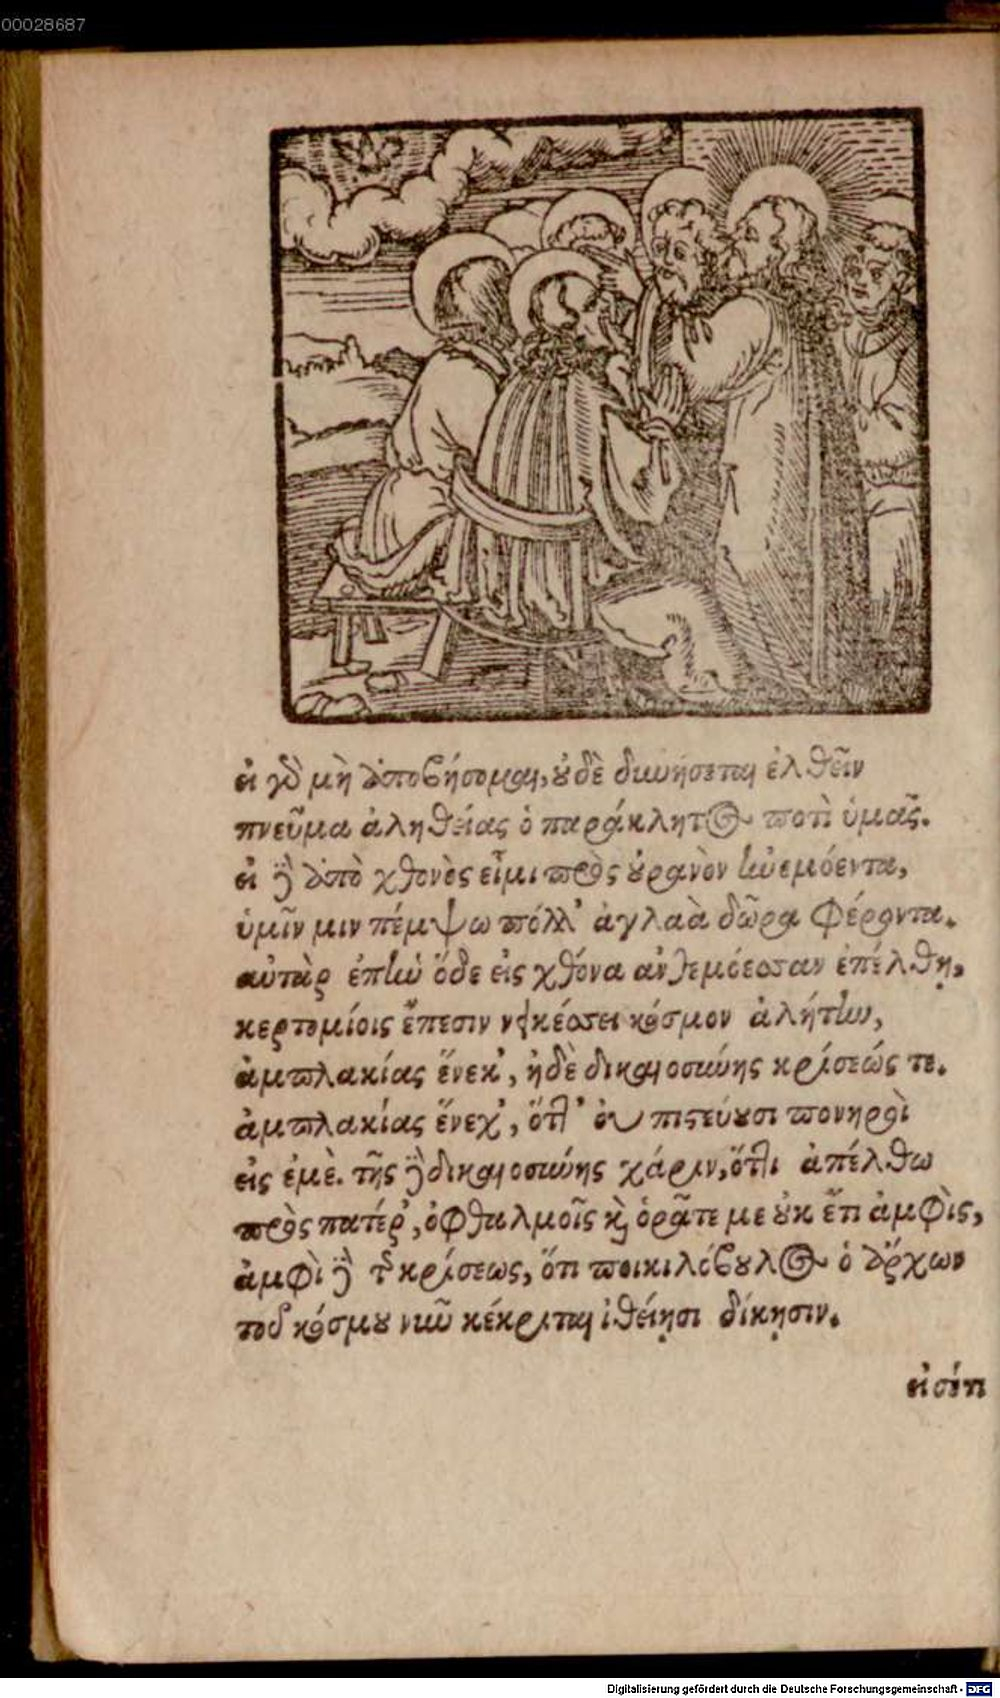 00028687
εἰ γὰρ μὴ ἀποβήσομαι, οὐδὲ δυνήσεται ἐλθεῖν
πνεῦμα ἀληθείας ὁ παράκλητος ποτὶ ὑμᾶς.
εἰ δὲ ἀπὸ χθονὸς εἶμι πρὸς οὐρανὸν ἠνεμόεντα,
ὑμῖν μιν πέμψω πόλλ' ἀγλαὰ δῶρα φέροντα.
αὐτὰρ ἐπὴν ὅδε εἰς χθόνα ἀνθεμόεσσαν ἐπέλθῃ,
κερτομίοις ἔπεσιν νεικέσσει κόσμον ἀλήτην,
ἀμπλακίας ἕνεκ', ἠδὲ δικαιοσύνης κρίσεώς τε.
ἀμπλακίας ἕνεχ', ὅττ' οὐ πιστεύουσι πονηροὶ
εἰς ἐμὲ. τῆς δὲ δικαιοσύνης χάριν, ὅττι ἀπέλθω
πρὸς πατέρ', ὀφθαλμοῖς καὶ ὁρᾶτε με οὐκ ἔτι ἀμφὶς,
ἀμφὶ δὲ τῆς κρίσεως, ὅτι ποικιλόβουλος ὁ ἄρχων
τοῦ κόσμου νῦν κέκριται ἰθείῃσι δίκῃσιν.
εἰσέτι
Digitalisierung gefördert durch die Deutsche Forschungsgemeinschaft - DFG